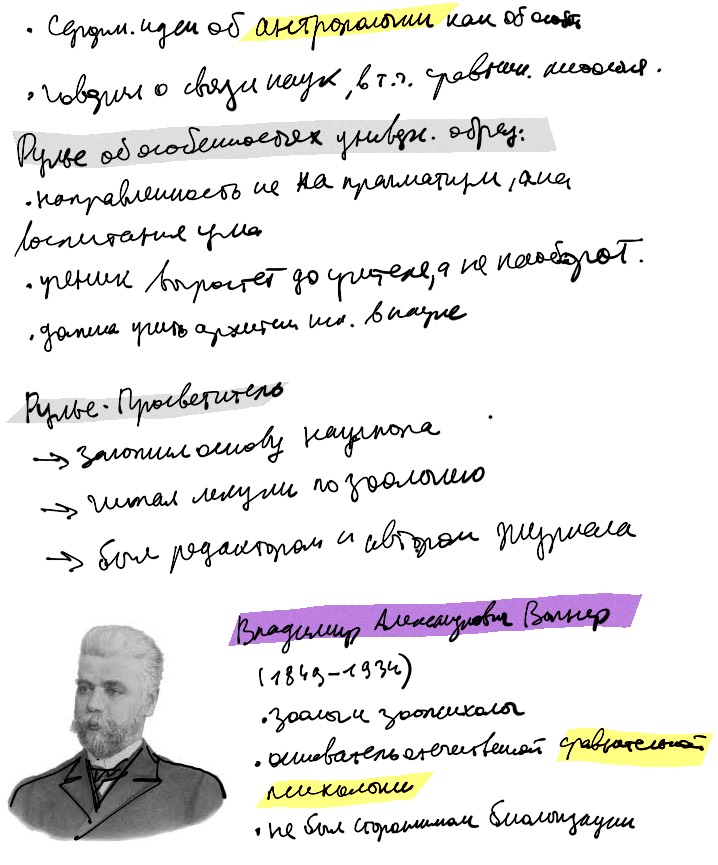 идеи об антропологии как об особ
• говорил о связи наук, в т.ч. сравнит. психол.
Рулье об особенностях универ. образ:
• направленность не на прагматизм, а на
воспитание ума
• ученик вырастет до учителя, а не наоборот.
учить в науке
Рулье - Просветитель
→ заложил основу научпопа
→ читал лекции по зоологию
→ был редактором и автором журнала
Владимир Александрович Вагнер
(1849-1934)
• зоолог и зоопсихолог
• основатель отечественной сравнительной
психологии
• не был сторонником биологизации